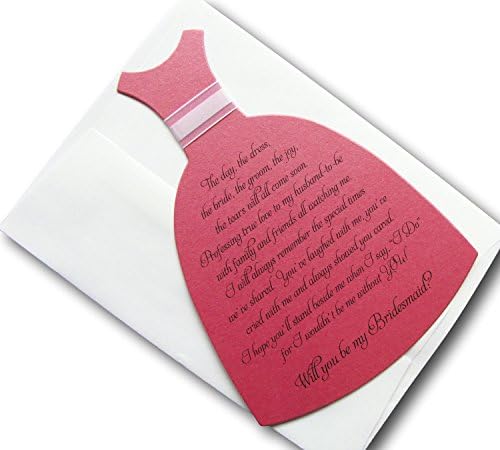 The day, the dress,
the bride, the groom, the joy,
the tears will all come soon.
Professing true love to my husband-to-be
with family and friends all watching me.
I will always remember the special times
we've shared. You've laughed with me, you've
cried with me and always showed you cared.
I hope you'll stand beside me when I say, "I Do"
for I wouldn't be me without YOU!
Will you be my Bridesmaid?